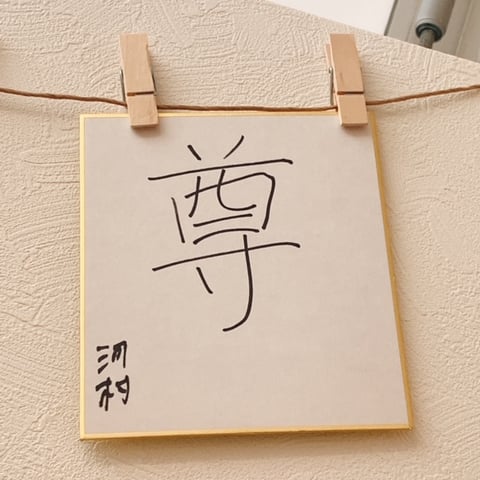 尊
河村